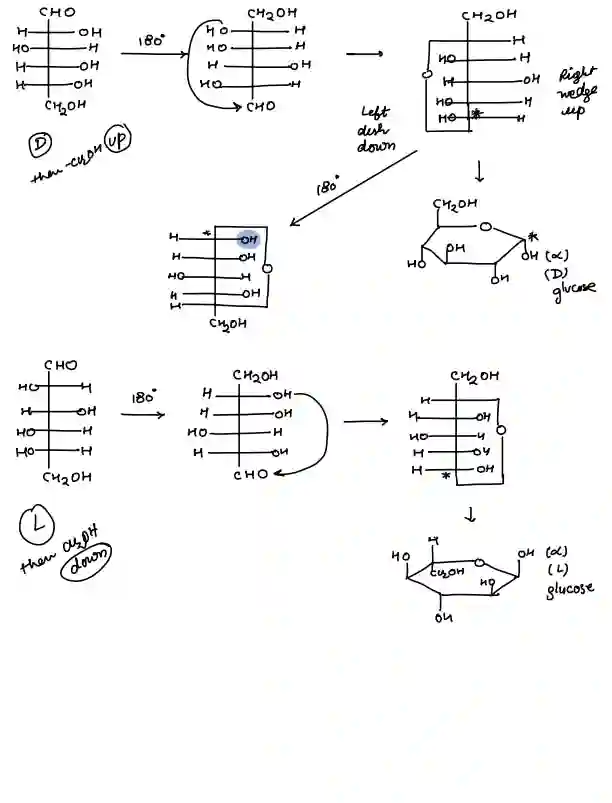 CHO
H OH
HO H
H OH
H OH
CH2OH
D
then -CH2OH up
180°
CH2OH
HO H
HO H
H OH
HO H
CHO
Left
dish
down
CH2OH
H
HO H
O
H OH
HO H
HO * H
Right
wedge
up
180°
* 
H OH
H OH
HO H
O
H OH
H
CH2OH
CH2OH
O
*
OH
HO
OH
OH
(α)
(D)
glucose
CHO
HO H
H OH
HO H
HO H
CH2OH
L
then CH2OH
down
180°
CH2OH
H OH
H OH
HO H
H OH
CHO
CH2OH
H
H OH
O
HO H
H OH
H OH
*
H
HO
CH2OH
O
HO
OH
OH
(α)
(L)
glucose